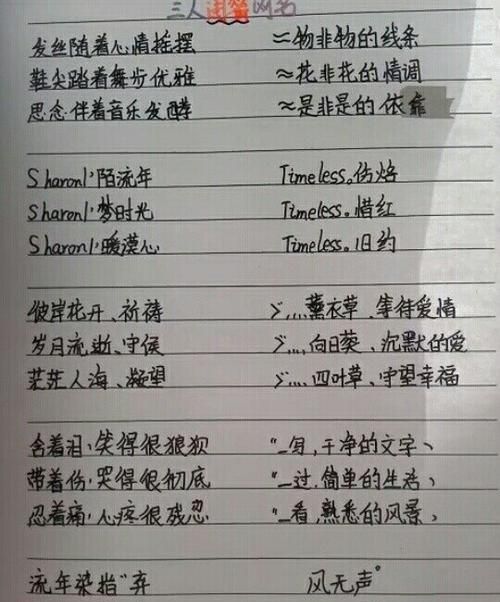 三人闺蜜网名
发丝随着心情摇摆 ≈物非物的线条
鞋尖踏着舞步优雅 ≈花非花的情调
思念伴着音乐发酵 ≈是非是的依靠
Sharonl°陌流年 Timeless。伤焰
Sharonl°梦时光 Timeless。惜红
Sharonl°暖漠心 Timeless。旧约
彼岸花开、祈祷 ゞ....薰衣草、等待爱情
岁月流逝、守侯 ゞ....向日葵、沉默的爱
茫茫人海、凝望 ゞ....四叶草、守望幸福
含着泪,笑得很狼狈 “_写,干净的文字、
带着伤,哭得很彻底 “_过,简单的生活、
忍着痛,心疼很残忍 “_看,熟悉的风景、
流年染指“弃 风无声°